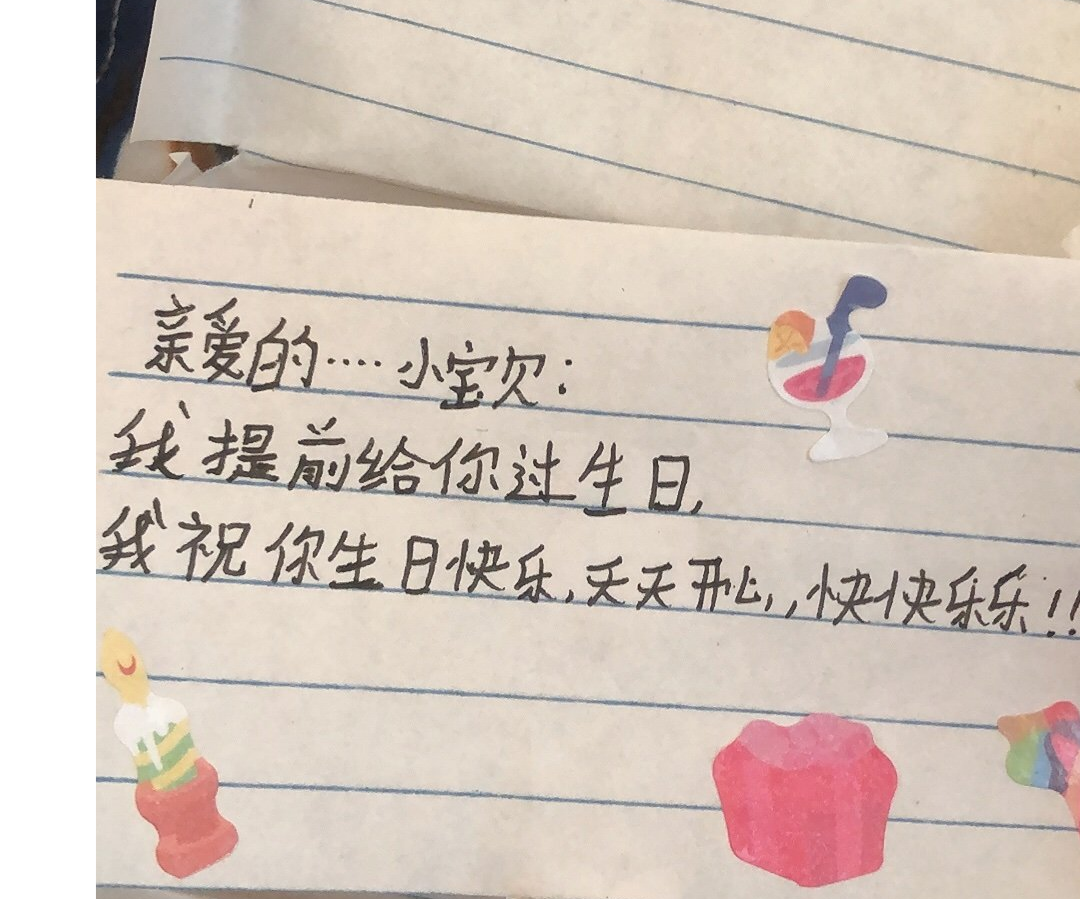 亲爱的····小宝欠：
我提前给你过生日,
我祝你生日快乐,天天开心,,快快乐乐!!